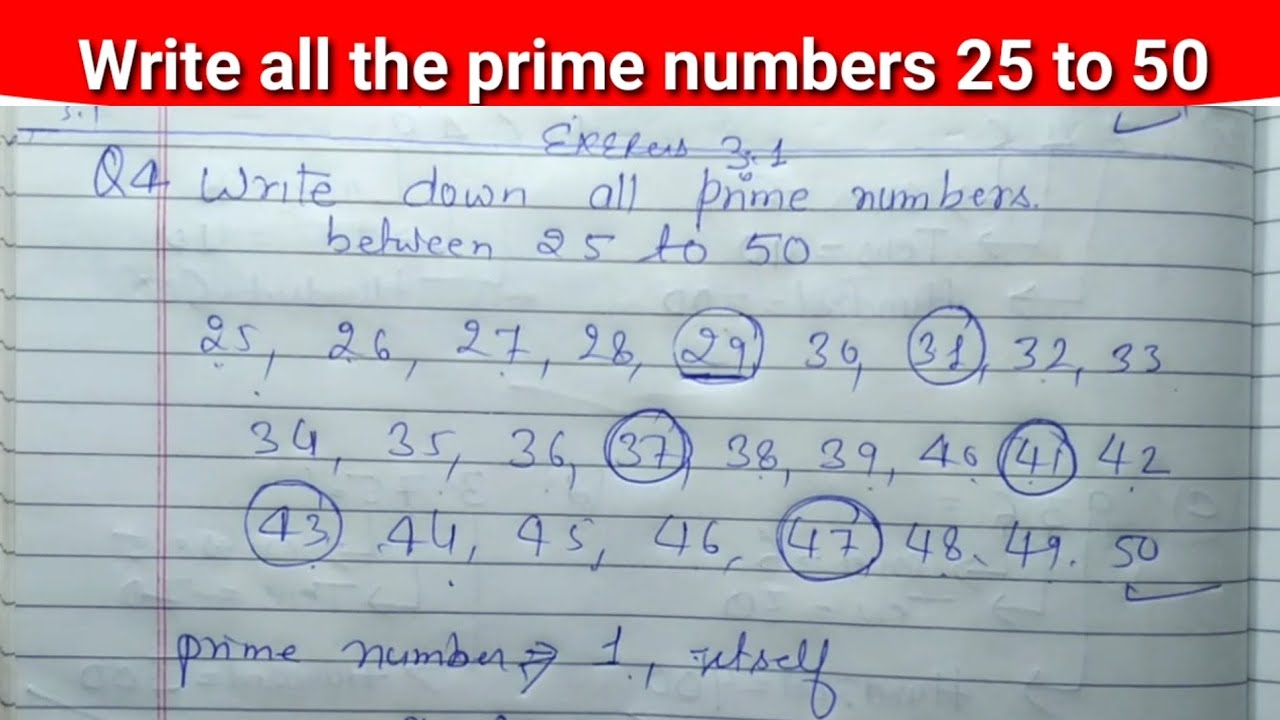 Write all the prime numbers 25 to 50
3.1
Exercus 3.1
Q4 Write down all prime numbers.
between 25 to 50
25, 26, 27, 28, 29, 30, 31, 32, 33
34, 35, 36, 37, 38, 39, 40 41 42
43 44, 45, 46, 47 48. 49. 50
prime number ⇒ 1, itself